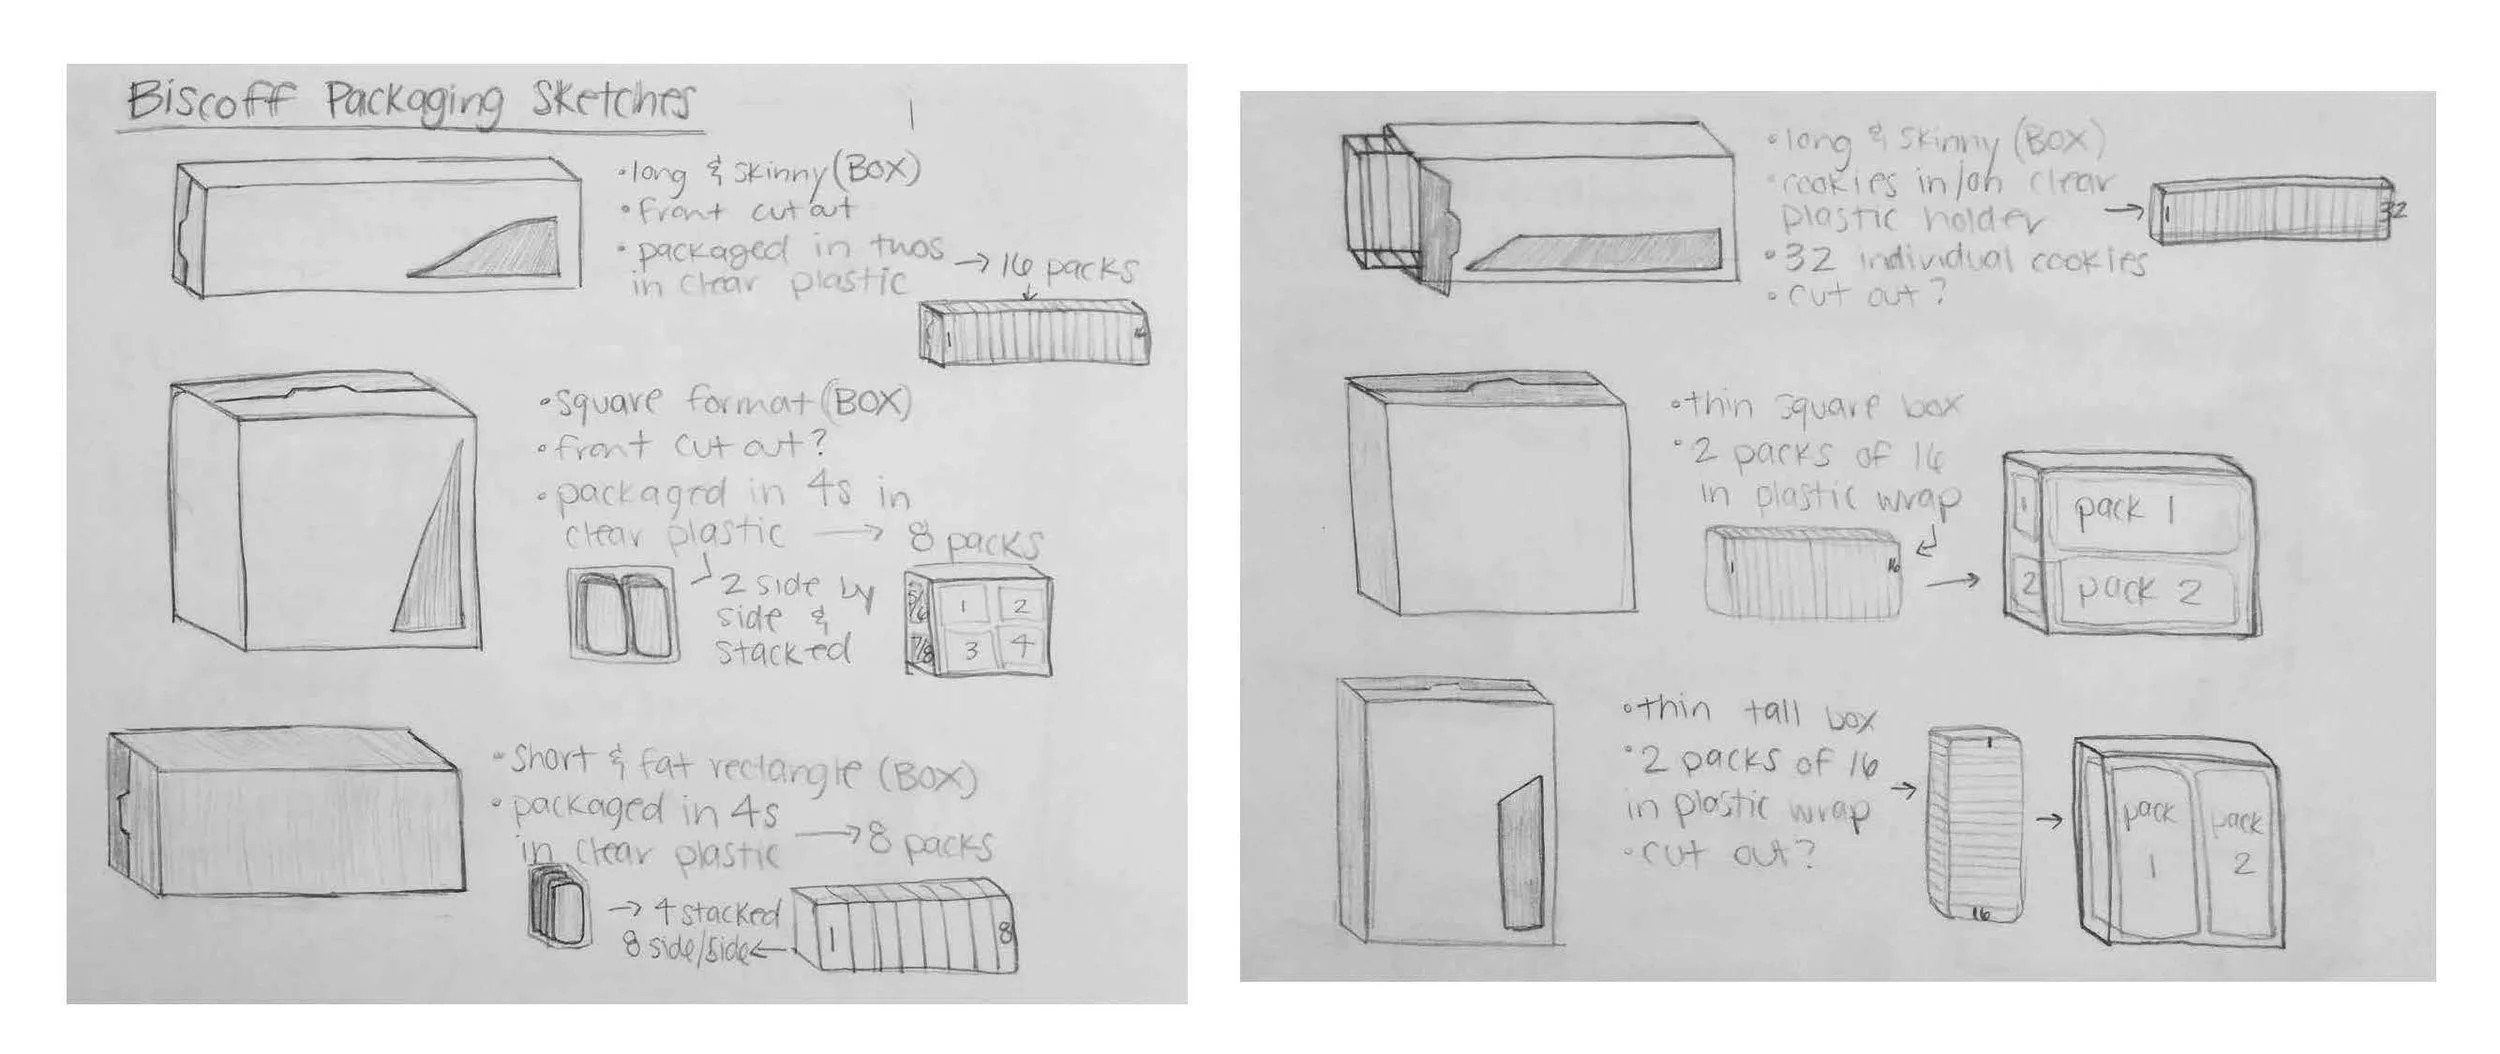 Biscoff Packaging Sketches
• long & skinny (BOX)
• front cut out
• packaged in twos
in clear plastic
→ 16 packs
1
16
• square format (BOX)
• front cut out?
• packaged in 4s in
clear plastic → 8 packs
2 side by
side &
stacked
5/6
7/8
1 2
3 4
• short & fat rectangle (BOX)
• packaged in 4s
in clear plastic
→ 8 packs
→ 4 stacked
8 side/side ←
1
8
• long & skinny (BOX)
• cookies in/on clear
plastic holder →
• 32 individual cookies
• cut out?
1
32
• thin square box
• 2 packs of 16
in plastic wrap
1
16
→
1
2
pack 1
pack 2
• thin tall box
• 2 packs of 16
in plastic wrap
• cut out?
→
1
16
→
pack
1
pack
2